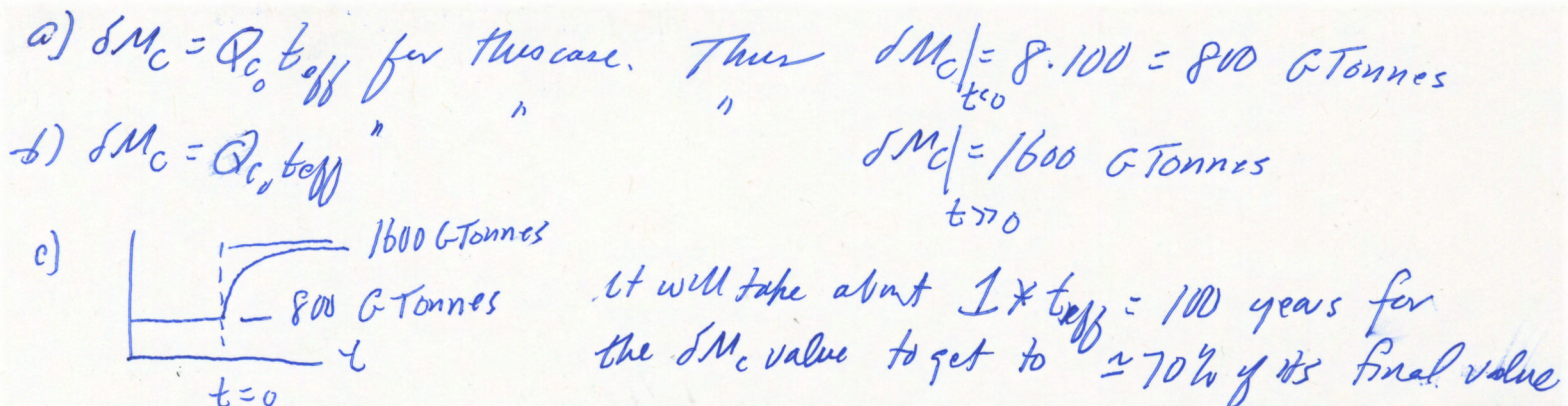 a) δM_c = Q_c₀ t_eff for this case. Thus δM_c|_t<0 = 8·100 = 800 GTonnes
b) δM_c = Q_c₀ t_eff " " " δM_c|_t>>0 = 1600 GTonnes
c) 1600 GTonnes
800 GTonnes
t
t=0
it will take about 1 * t_eff = 100 years for
the δM_c value to get to ≃70% of its final value